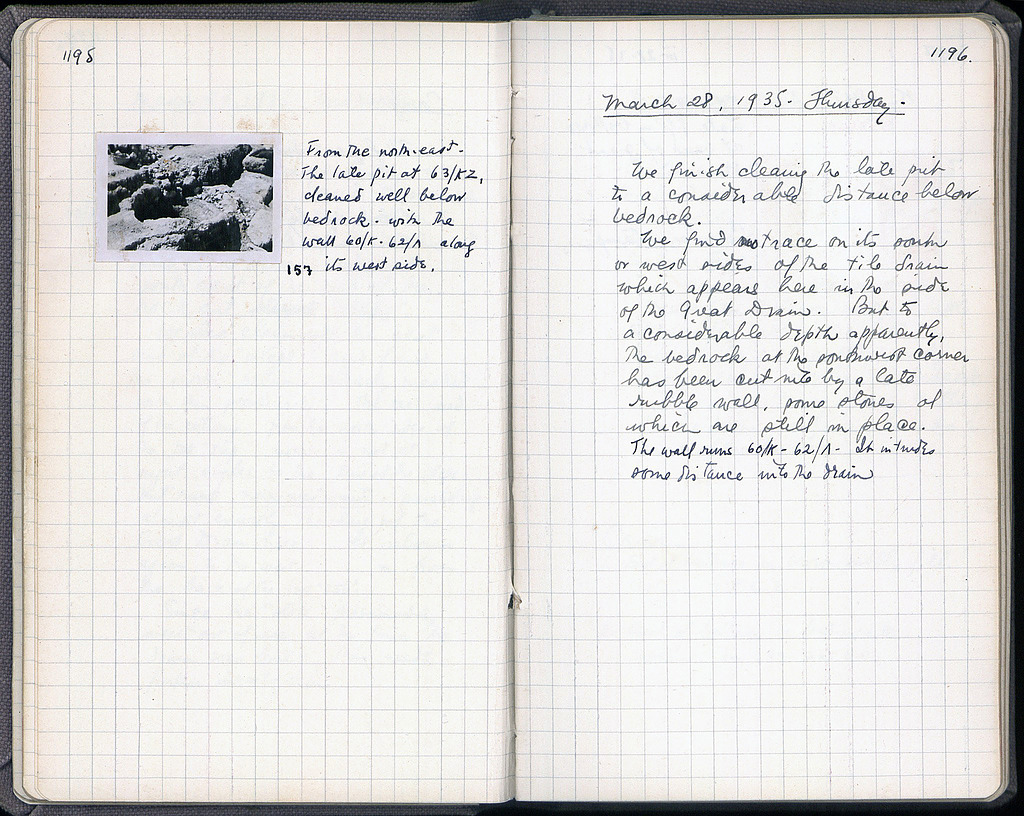 1195
From the north-east.
The late pit at 63/ΚΖ,
cleaned well below
bedrock - with the
wall 60/Κ - 62/Λ along
157 its west side.
1196.
March 28, 1935. Thursday.
We finish cleaning the late pit
to a considerable distance below
bedrock.
We find no trace on its south
or west sides of the tile drain
which appears here in the side
of the Great Drain. But to
a considerable depth apparently,
the bedrock at the southwest corner
has been cut into by a late
rubble wall, some stones of
which are still in place.
The wall runs 60/Κ - 62/Λ - It intrudes
some distance into the drain